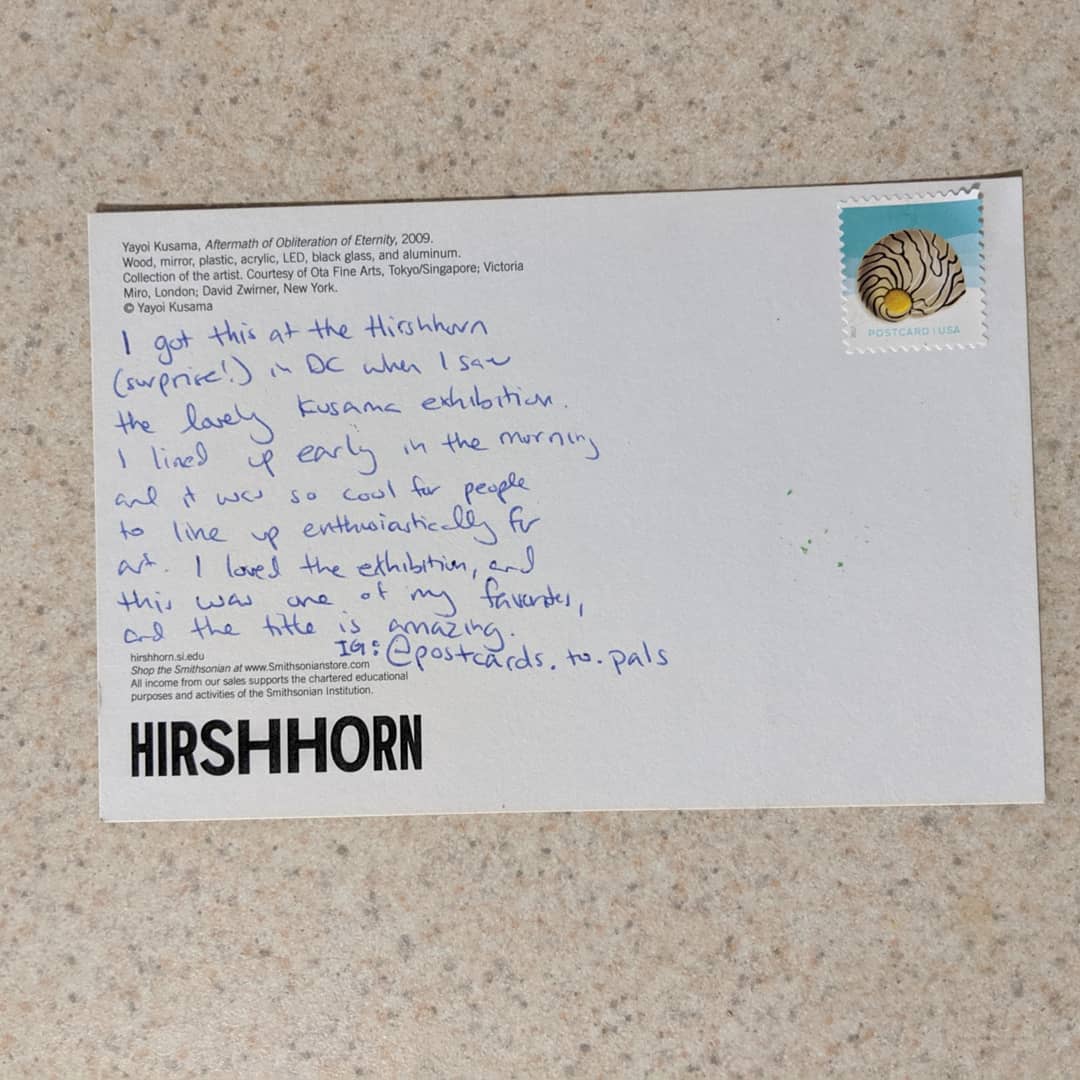 Yayoi Kusama, Aftermath of Obliteration of Eternity, 2009.
Wood, mirror, plastic, acrylic, LED, black glass, and aluminum.
Collection of the artist. Courtesy of Ota Fine Arts, Tokyo/Singapore; Victoria
Miro, London; David Zwirner, New York.
© Yayoi Kusama
POSTCARD | USA
I got this at the Hirshhorn
(surprise!) in DC when I saw
the lovely Kusama exhibition.
I lined up early in the morning
and it was so cool for people
to line up enthusiastically for
art. I loved the exhibition, and
this was one of my favorites,
and the title is amazing.
IG: @postcards.to.pals
hirshhorn.si.edu
Shop the Smithsonian at www.Smithsonianstore.com
All income from our sales supports the chartered educational
purposes and activities of the Smithsonian Institution.
HIRSHHORN